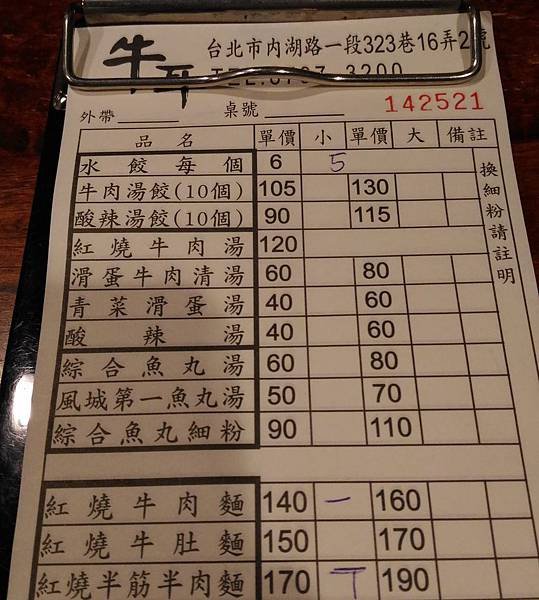 牛耳
台北市內湖路一段323巷16弄2號
3200
外帶 桌號 142521
品名 單價 小 單價 大 備註
水餃每個 6 5
牛肉湯餃(10個) 105 130
酸辣湯餃(10個) 90 115
紅燒牛肉湯 120
滑蛋牛肉清湯 60 80
青菜滑蛋湯 40 60
酸辣湯 40 60
綜合魚丸湯 60 80
風城第一魚丸湯 50 70
綜合魚丸細粉 90 110
換細粉請註明
紅燒牛肉麵 140 一 160
紅燒牛肚麵 150 170
紅燒半筋半肉麵 170 丅 190